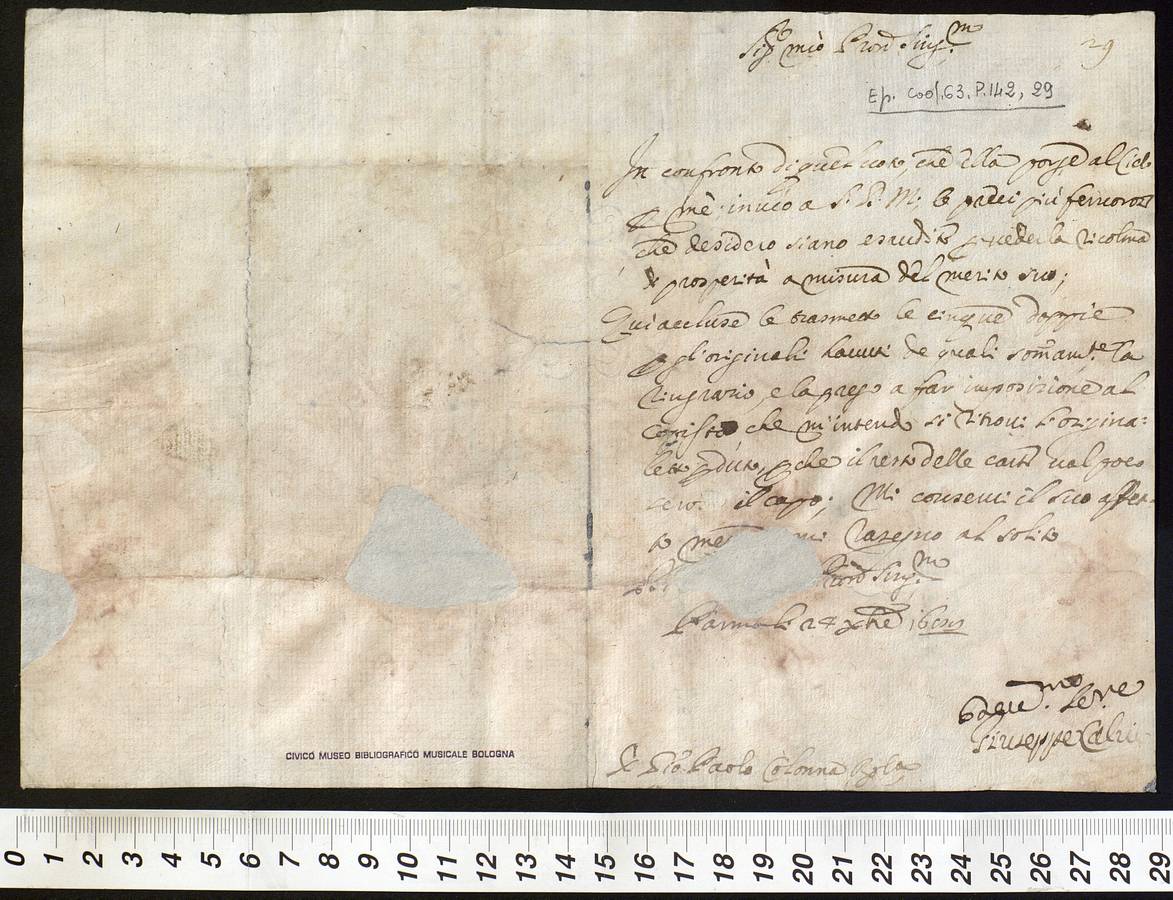 Sig.r mio Pron Sing.mo
29
Ep. Cod. 63. P.142, 29
In confronto di quei voti, che Ella porge al Cielo
p me; invio a S. D. M. le preci più fervorose
che desidero siano esaudite p vederla ricolma
di prosperità a misura del merito suo;
Qui accluse le trasmetto le cinque doppie
p gl'originali havuti de quali som.te la
ringrazio, e la prego a far imposizione al
Copista che m'intendo si ritrovi l'origina=
letto pduto, pche il resto delle carte val poco
il capo; Mi conservi il suo affet-
to me rasegno al solito
Pron Sing.mo
Parma li 24 Xbre
Ser.re
Giuseppe
S. Gio: Paolo Colonna Bola
CIVICO MUSEO BIBLIOGRAFICO MUSICALE BOLOGNA
0 1 2 3 4 5 6 7 8 9 10 11 12 13 14 15 16 17 18 19 20 21 22 23 24 25 26 27 28 29